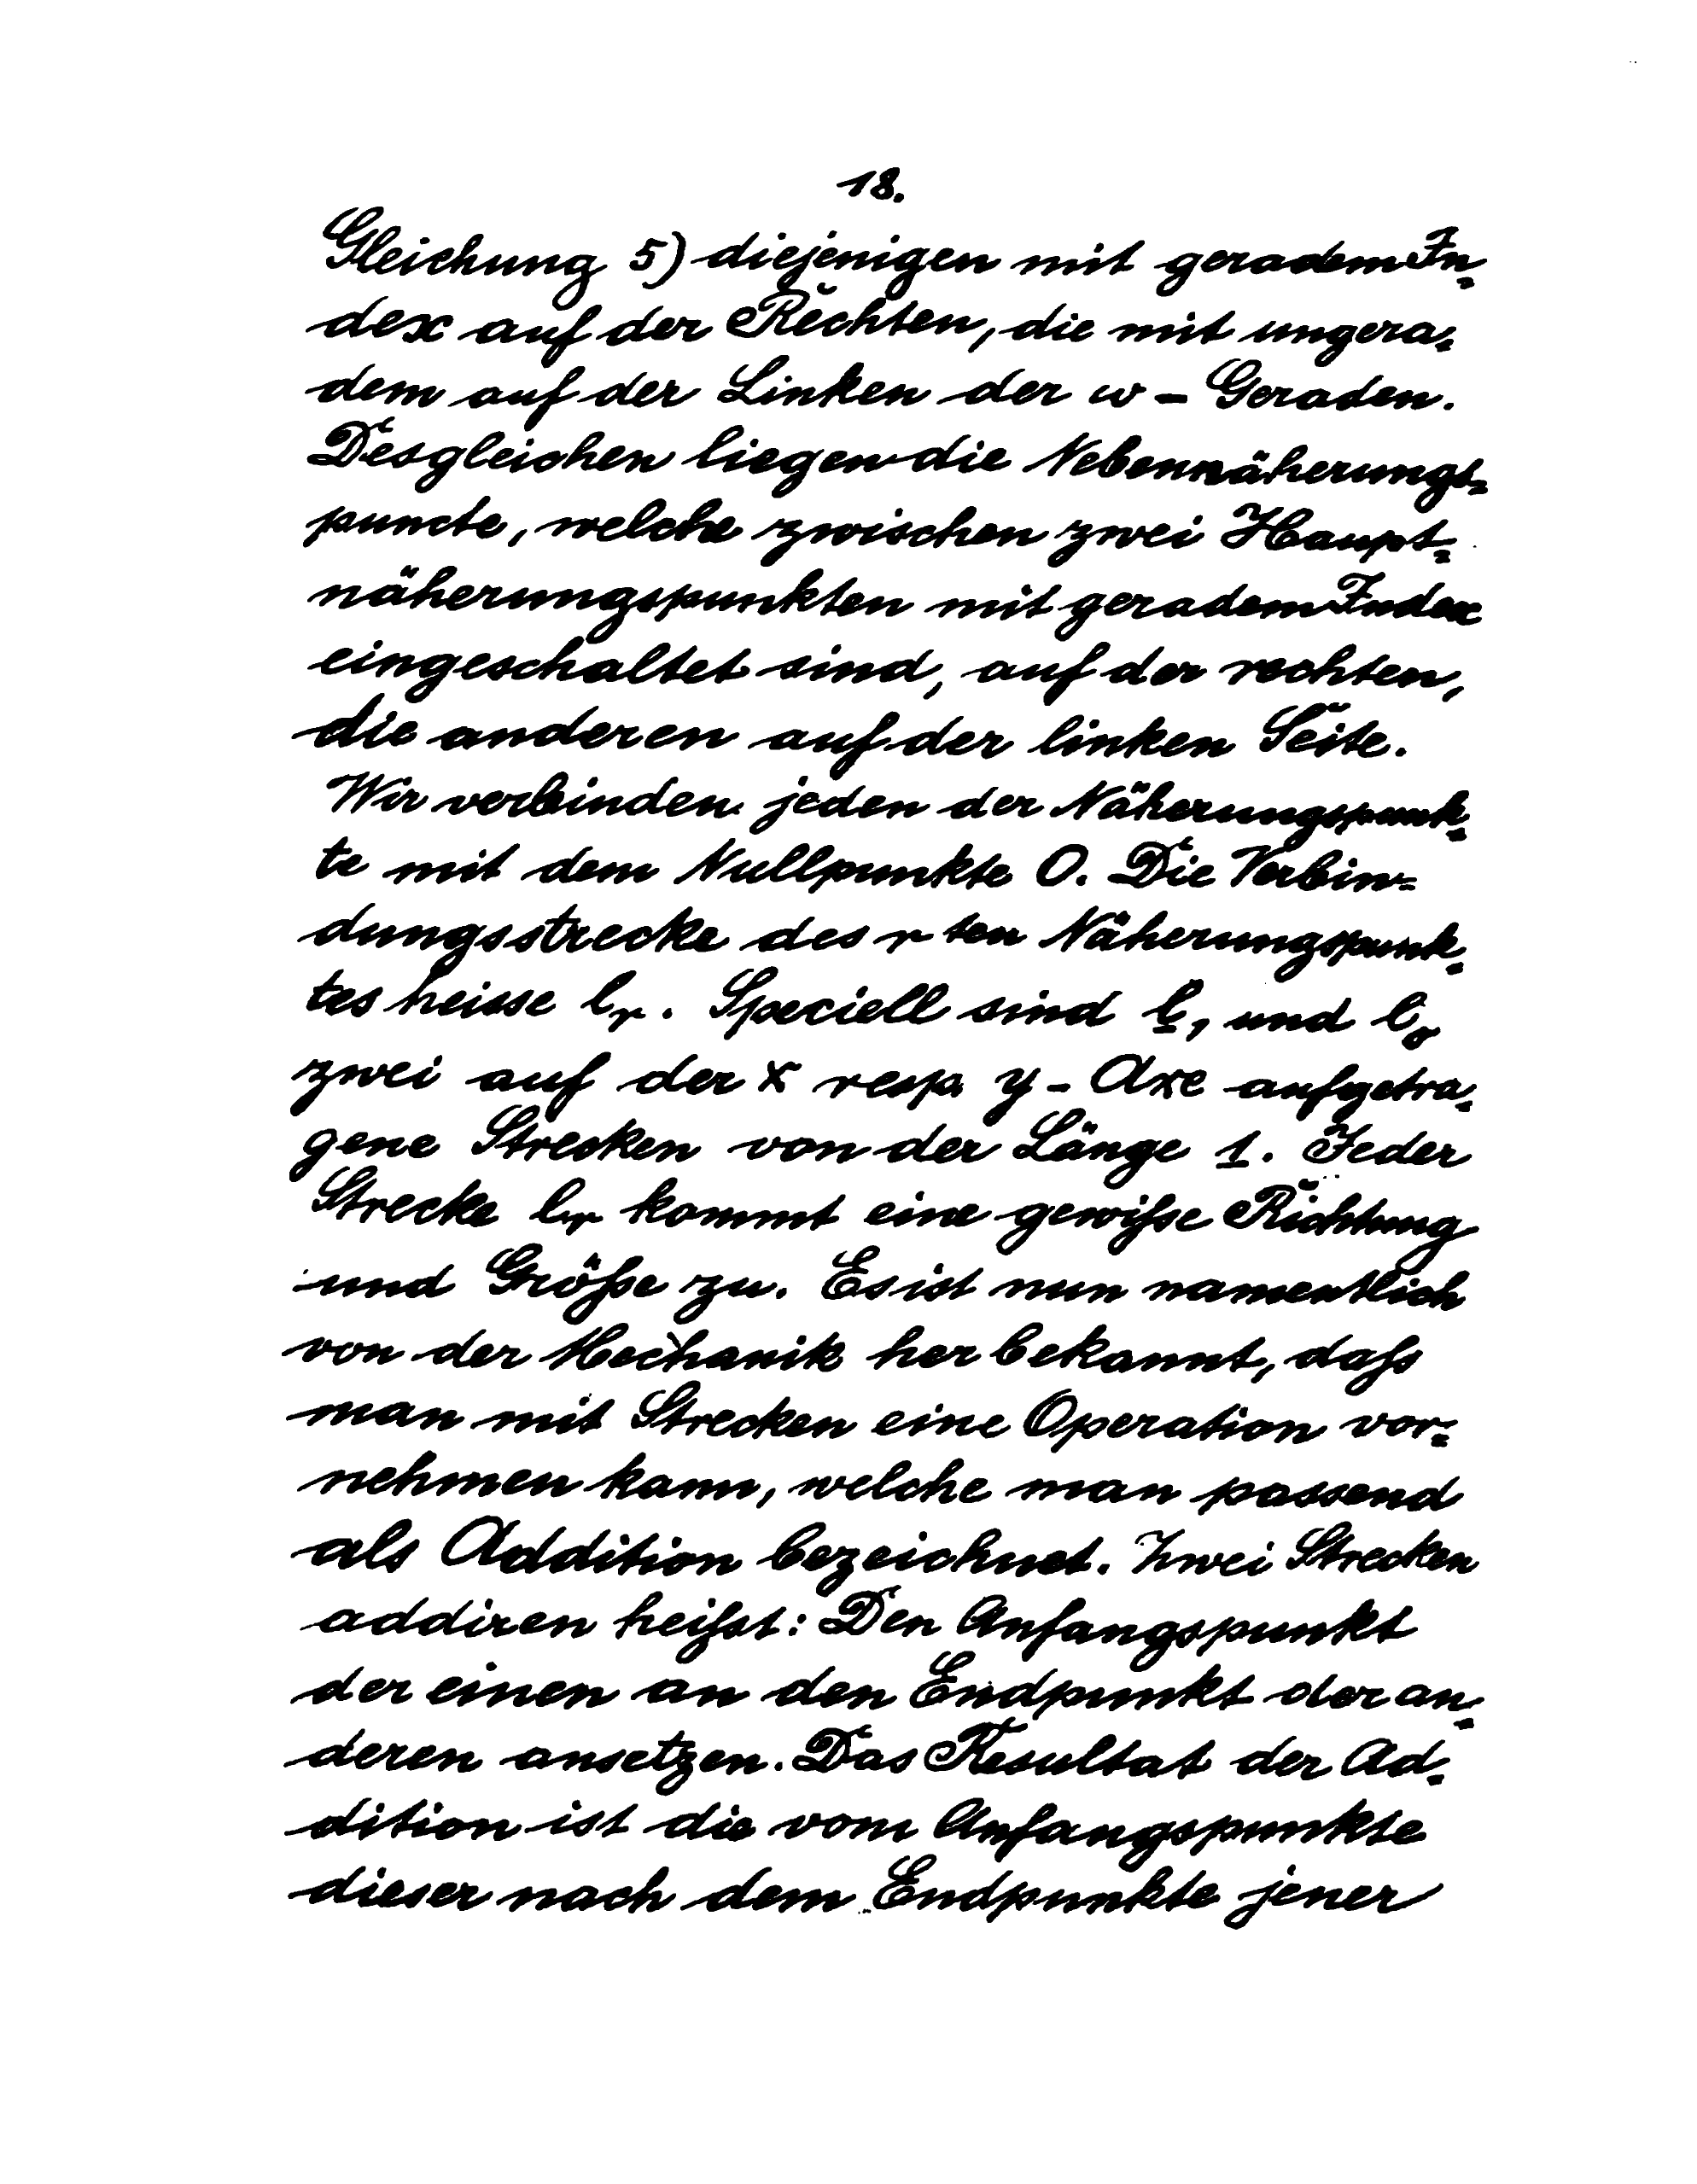 18.
Gleichung 5) diejenigen mit geradem In-
dex auf der Rechten, die mit ungera-
dem auf der Linken der w - Geraden.
Desgleichen liegen die Nebennäherungs-
puncte, welche zwischen zwei Haupt-
näherungspunkten mit geradem Index
eingeschaltet sind, auf der rechten,
die anderen auf der linken Seite.
Wir verbinden jeden der Näherungspunk-
te mit dem Nullpunkte O. Die Verbin-
dungsstrecke des r ten Näherungspunk-
tes heisse lᵣ. Speciell sind l₋₁ und l₀
zwei auf der x resp. y - Axe aufgetra-
gene Strecken von der Länge 1. Jeder
Strecke lᵣ kommt eine gewiſse Richtung
und Größe zu. Es ist nun namentlich
von der Mechanik her bekannt, daſs
man mit Strecken eine Operation vor-
nehmen kann, welche man passend
als Addition bezeichnet. Zwei Strecken
addiren heiſst: Den Anfangspunkt
der einen an den Endpunkt der an-
deren ansetzen. Das Resultat der Ad-
dition ist die vom Anfangspunkte
dieser nach dem Endpunkte jener